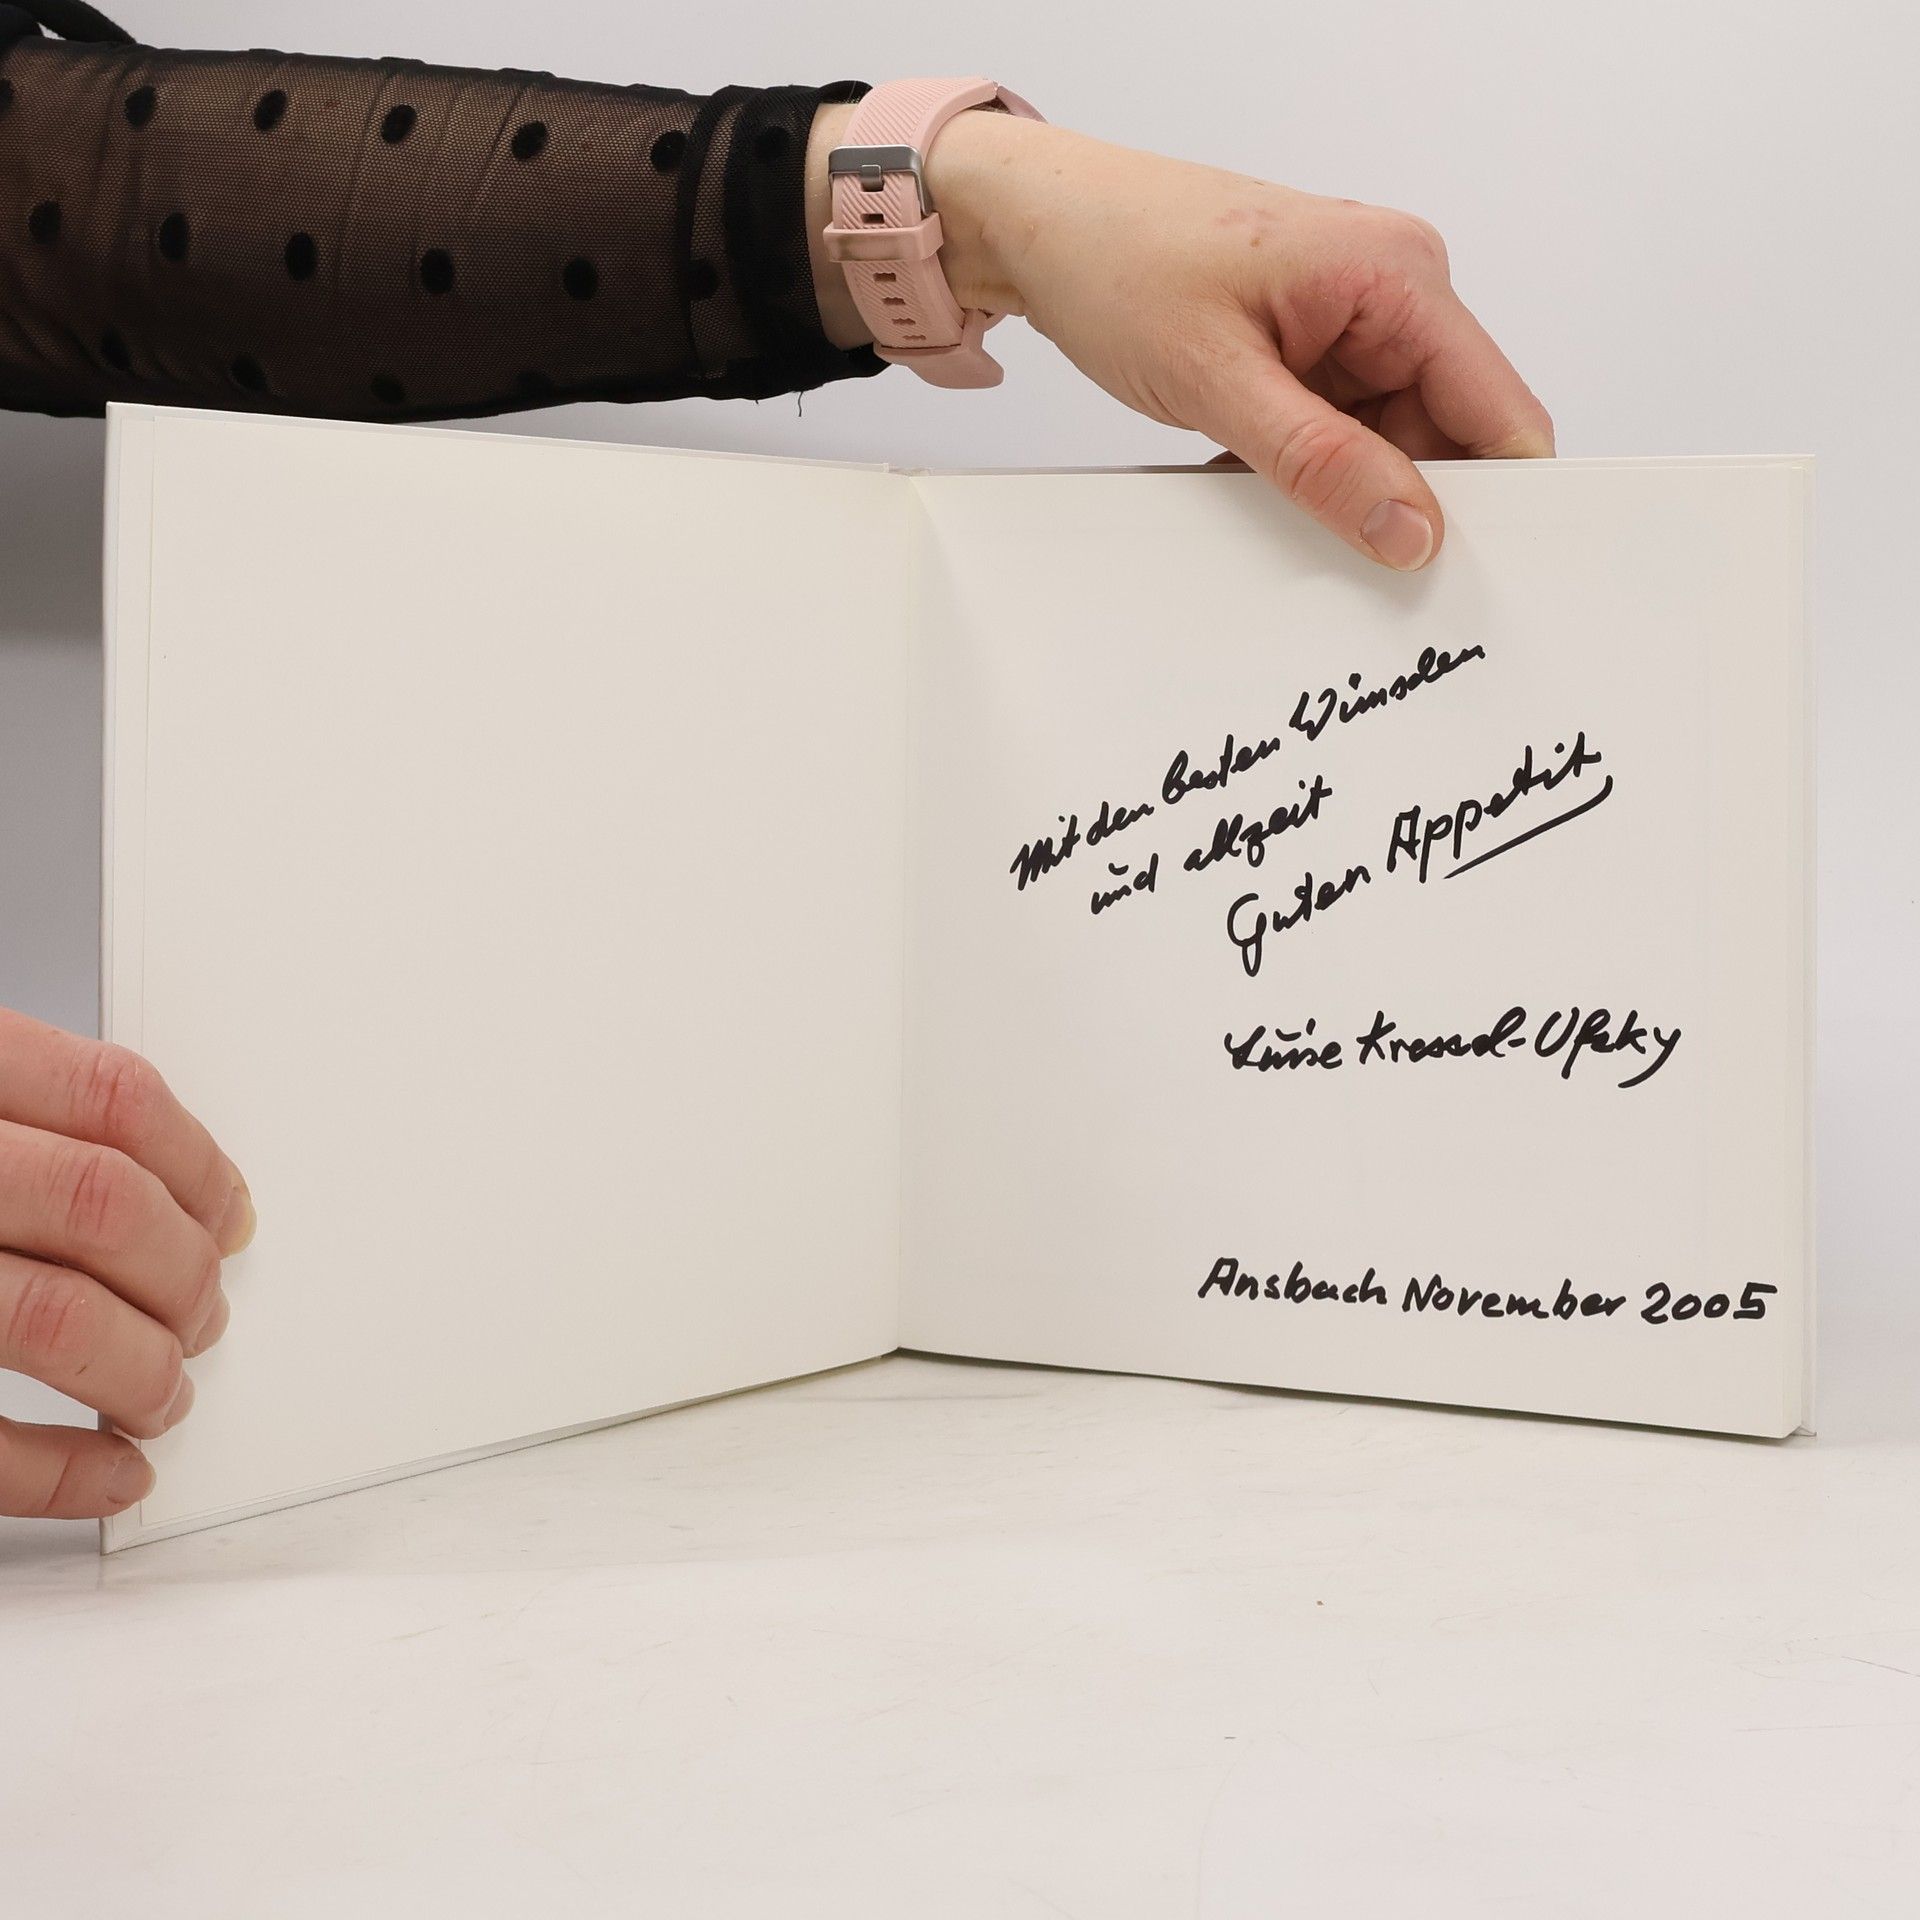 Mit den besten Wünschen
und allzeit
Guten Appetit
Luise Kressel-Ufsky
Ansbach November 2005